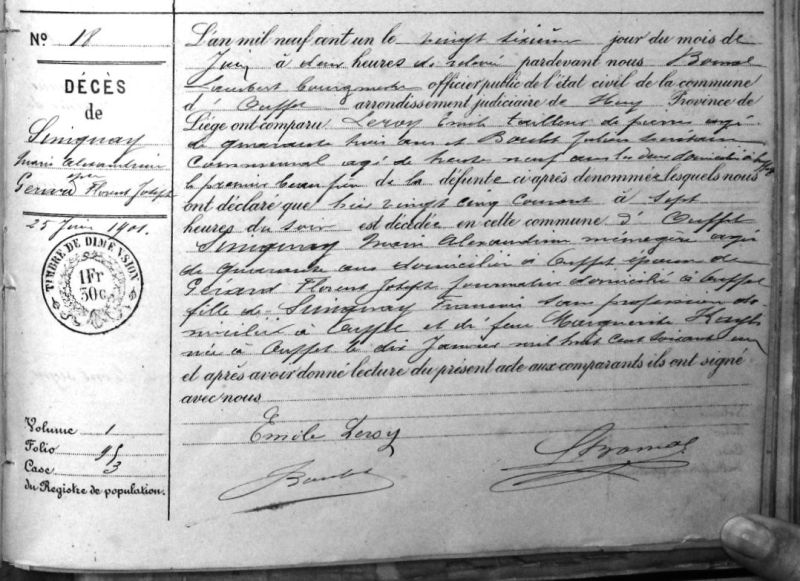 N° 18
DÉCÈS
de
Siniguay
Marie Alexandrine
épse
Gérard Florent Joseph
25 Juin 1901.
TIMBRE DE DIMENSION
1Fr
30c
Volume 1
Folio 95
Case 3
du Registre de population.
L'an mil neuf cent un le vingt sixième jour du mois de
Juin à deux heures de relevée pardevant nous Bomal
Lambert bourgmestre officier public de l'état civil de la commune
d' Ouffet arrondissement judiciaire de Huy Province de
Liége ont comparu Leroy Emile tailleur de pierres agé
de quarante trois ans et Boulet Julien secrétaire
communal agé de trente neuf ans les deux domiciliés à Ouffet
le premier beau frère de la défunte ci-après dénommée lesquels nous
ont déclaré que hier vingt cinq courant à sept
heures du soir est décédée en cette commune d' Ouffet
Siniguay Marie Alexandrine ménagère agée
de quarante ans domiciliée à Ouffet épouse de
Gérard Florent Joseph journalier domicilié à Ouffet
fille de Siniguay François sans profession do
micilié à Ouffet et de feue Marguerite
née à Ouffet le dix Janvier mil huit cent soixante un
et après avoir donné lecture du présent acte aux comparants ils ont signé
avec nous
Emile Leroy
Boulet
L Bomal